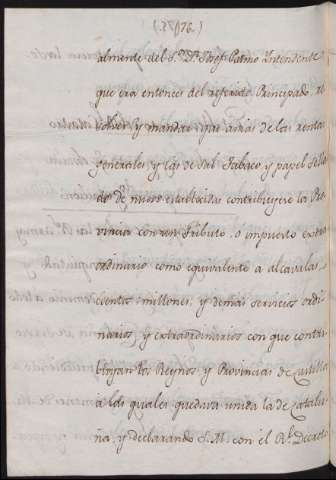 (276.)
almente del S.r D.n Josef Patiño Intendente
que era entonces del referido Principado, re
solver, y mandar que a mas de las rentas
generales, y las de Sal, Tabaco, y papel Sella
do de nuevo establecidas contribuyese la Pro
vincia con un Tributo, o impuesto extra
ordinario como equivalente a alcavalas,
cientos, millones, y demas servicios ordi
narios, y extraordinarios con que contri
buyan los Reynos, y Provincias de Castilla
a los quales quedava unida la de Catalu
ña, y declarando S. M. con el R.l Decreto